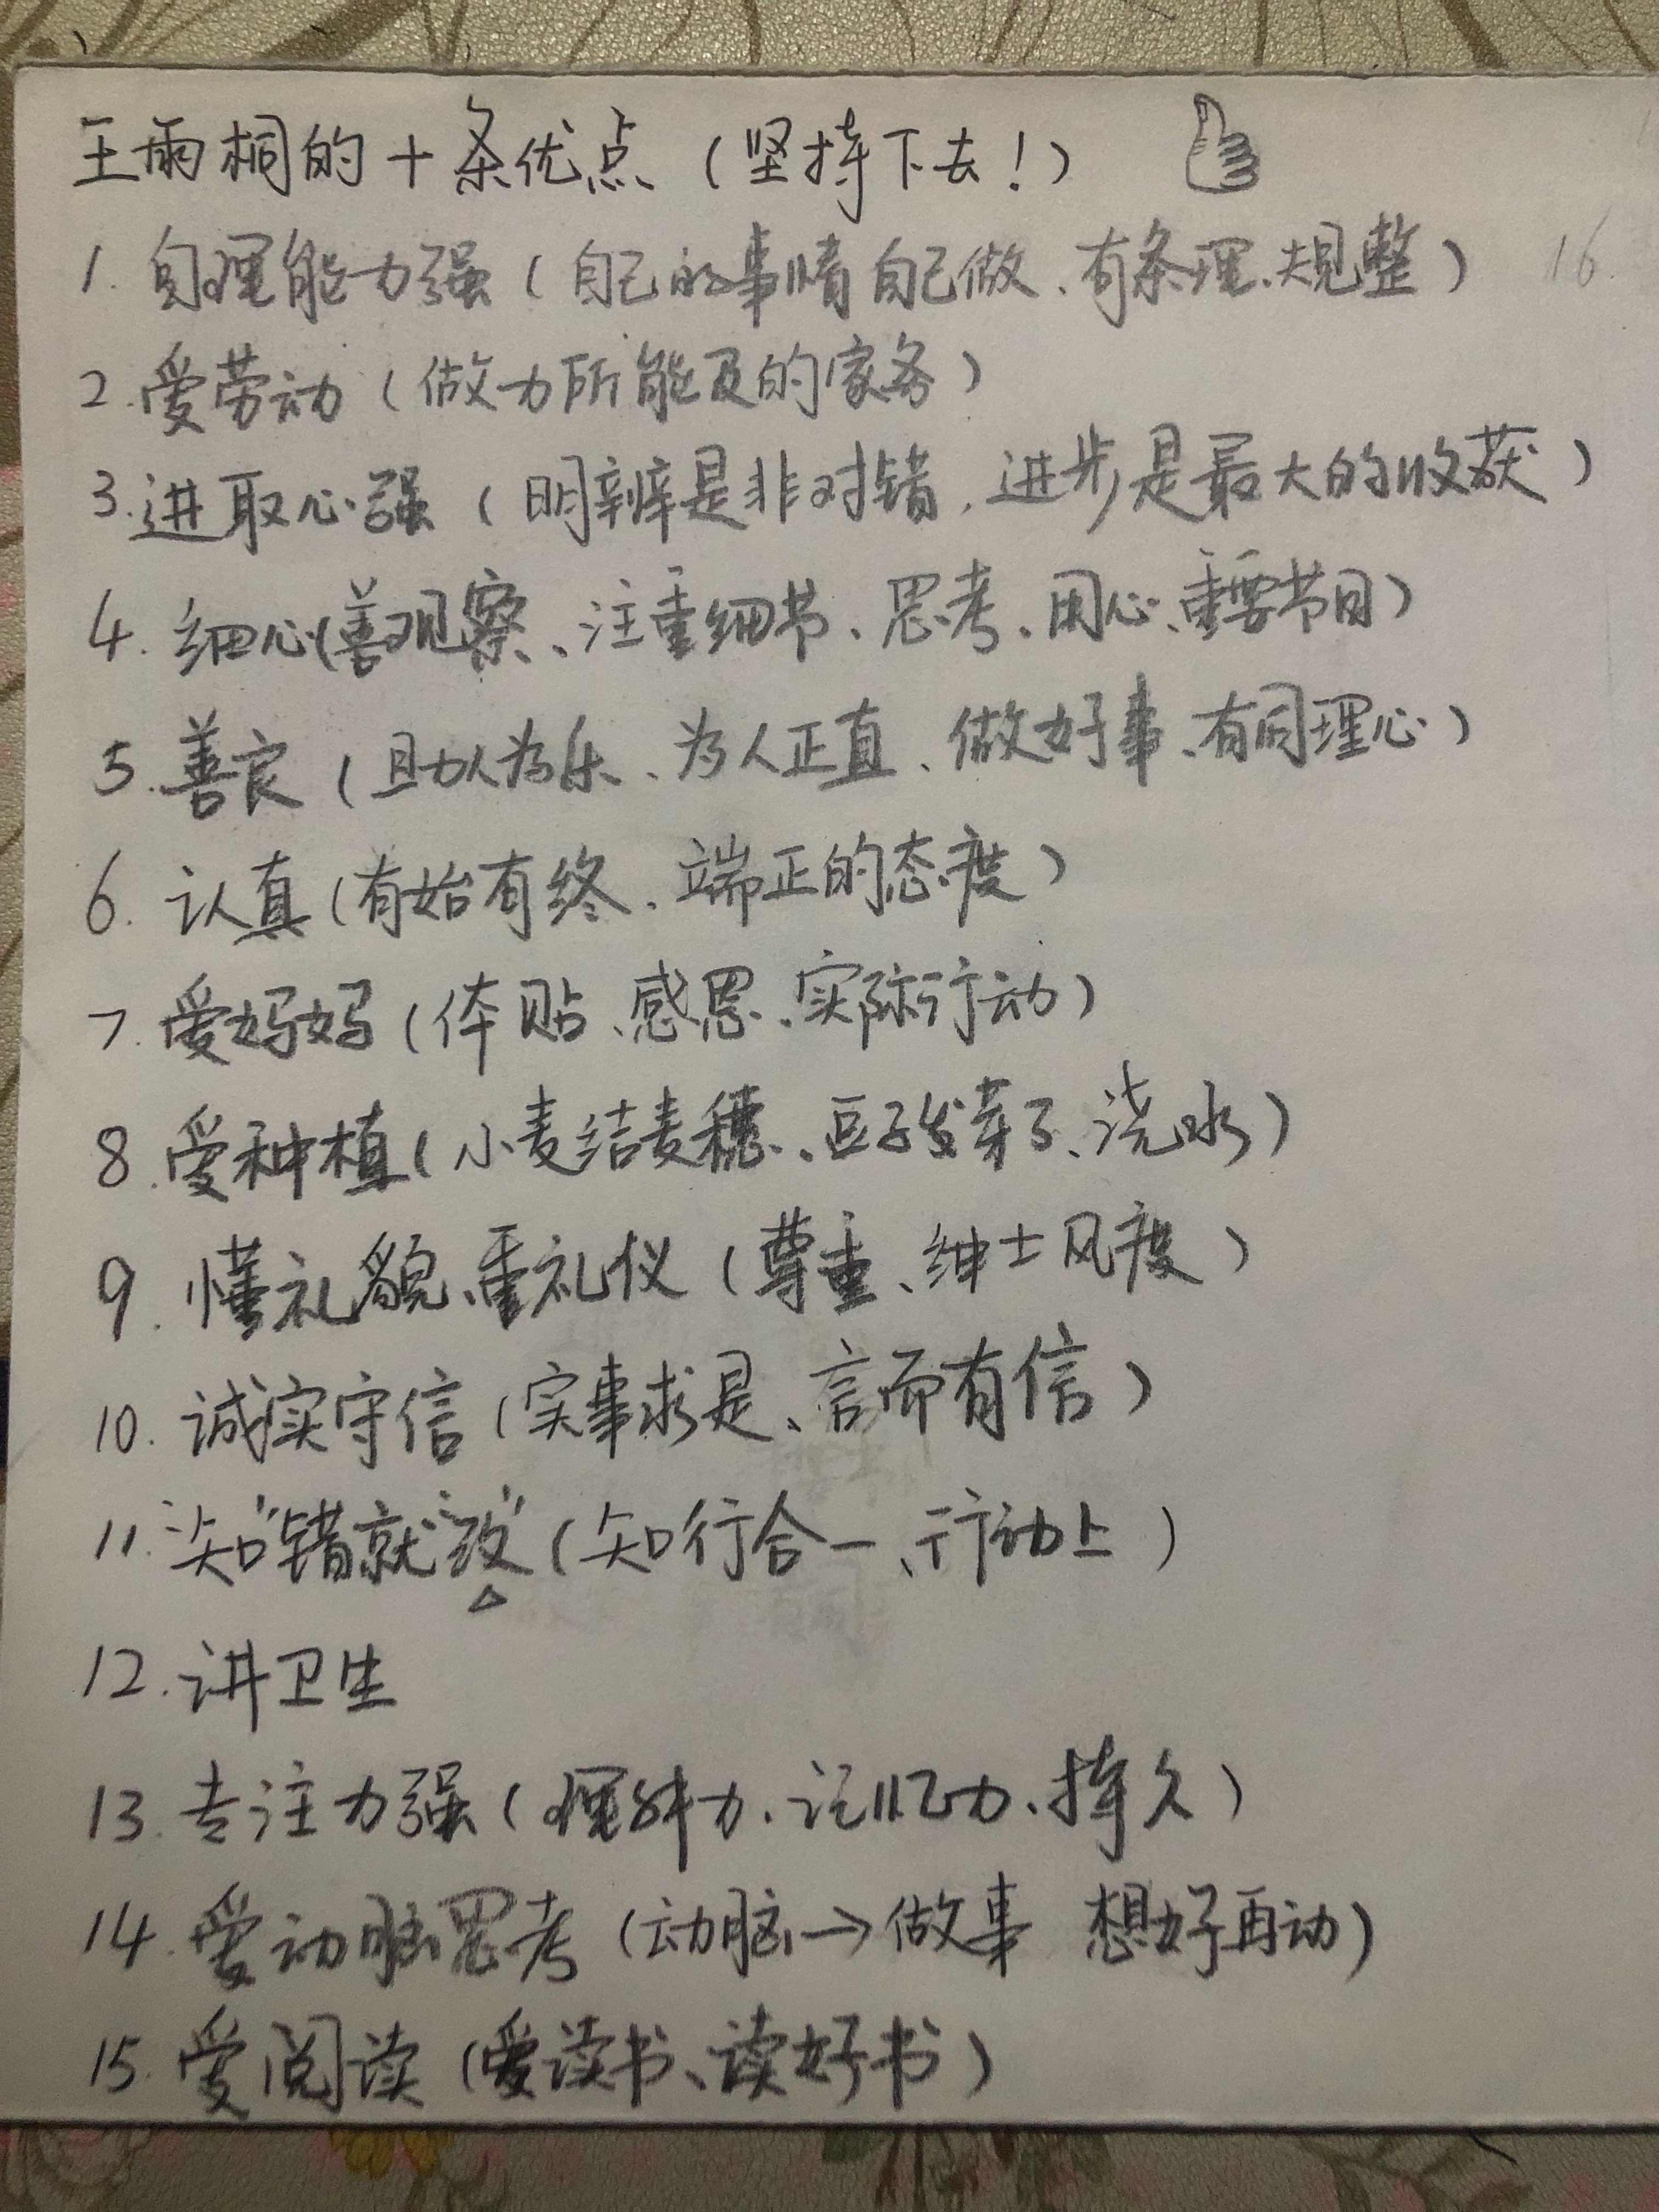 王雨桐的十条优点（坚持下去！）
1. 自理能力强（自己的事情自己做、有条理、规整） 16.
2. 爱劳动（做力所能及的家务）
3. 进取心强（明辨是非对错，进步是最大的收获）
4. 细心（善观察、注重细节、思考、用心、重要节日）
5. 善良（助人为乐、为人正直、做好事、有同理心）
6. 认真（有始有终、端正的态度）
7. 爱妈妈（体贴、感恩、实际行动）
8. 爱种植（小麦结麦穗、豆子发芽了、浇水）
9. 懂礼貌、重礼仪（尊重、绅士风度）
10. 诚实守信（实事求是、言而有信）
11. 知“错就“改”（知行合一、行动上）
12. 讲卫生
13. 专注力强（理解力、记忆力、持久）
14. 爱动脑思考（动脑→做事 想好再动）
15. 爱阅读（爱读书、读好书）